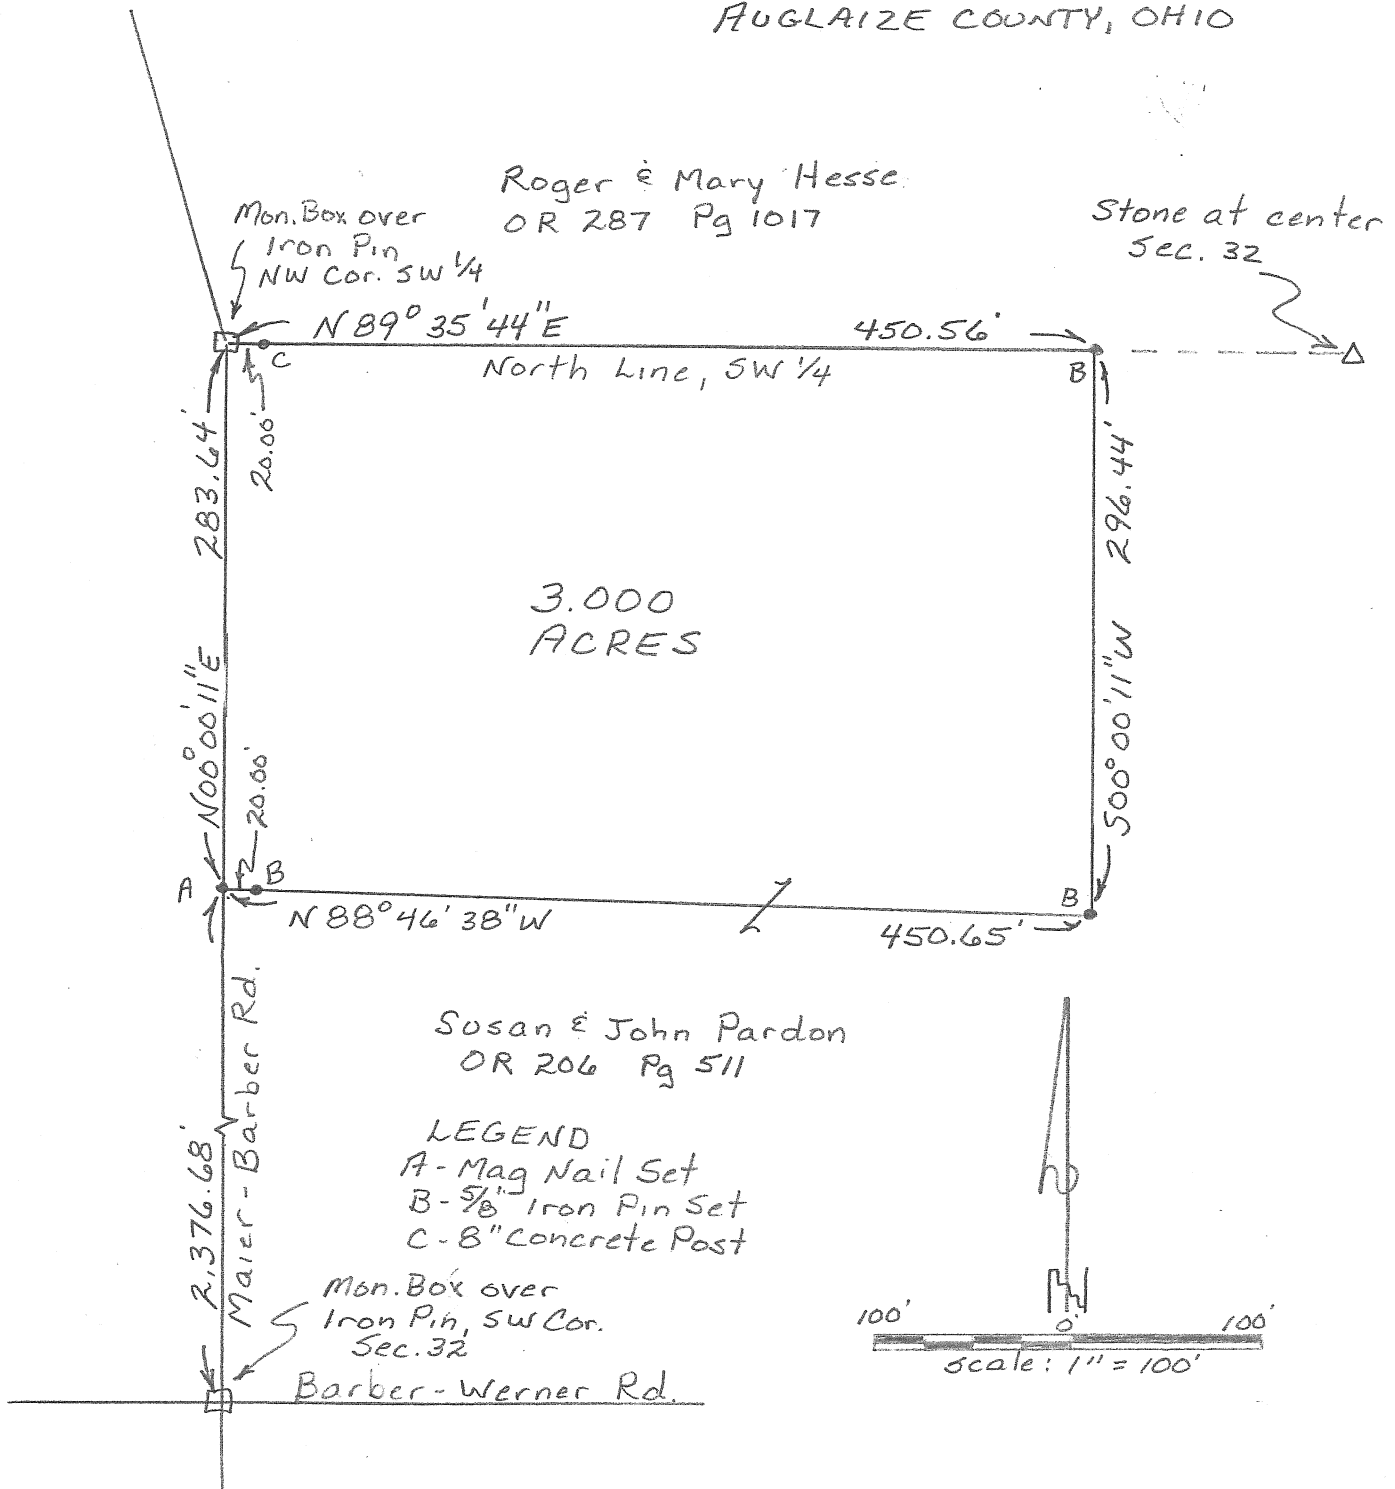 AUGLAIZE COUNTY, OHIO
Roger & Mary Hesse
OR 287 Pg 1017
Mon. Box over
Iron Pin
NW Cor. SW 1/4
Stone at center
Sec. 32
N 89° 35' 44" E
450.56'
C
North Line, SW 1/4
B
20.00'
283.64'
296.44'
3.000
ACRES
N00° 00' 11" E
S00° 00' 11" W
20.00'
A
B
B
N 88° 46' 38" W
450.65'
Susan & John Pardon
OR 206 Pg 511
Maier-Barber Rd.
2,376.68'
LEGEND
A - Mag Nail Set
B - 5/8" Iron Pin Set
C - 8" Concrete Post
Mon. Box over
Iron Pin, SW Cor.
Sec. 32
Barber-Werner Rd.
N
100' 0' 100'
scale: 1" = 100'